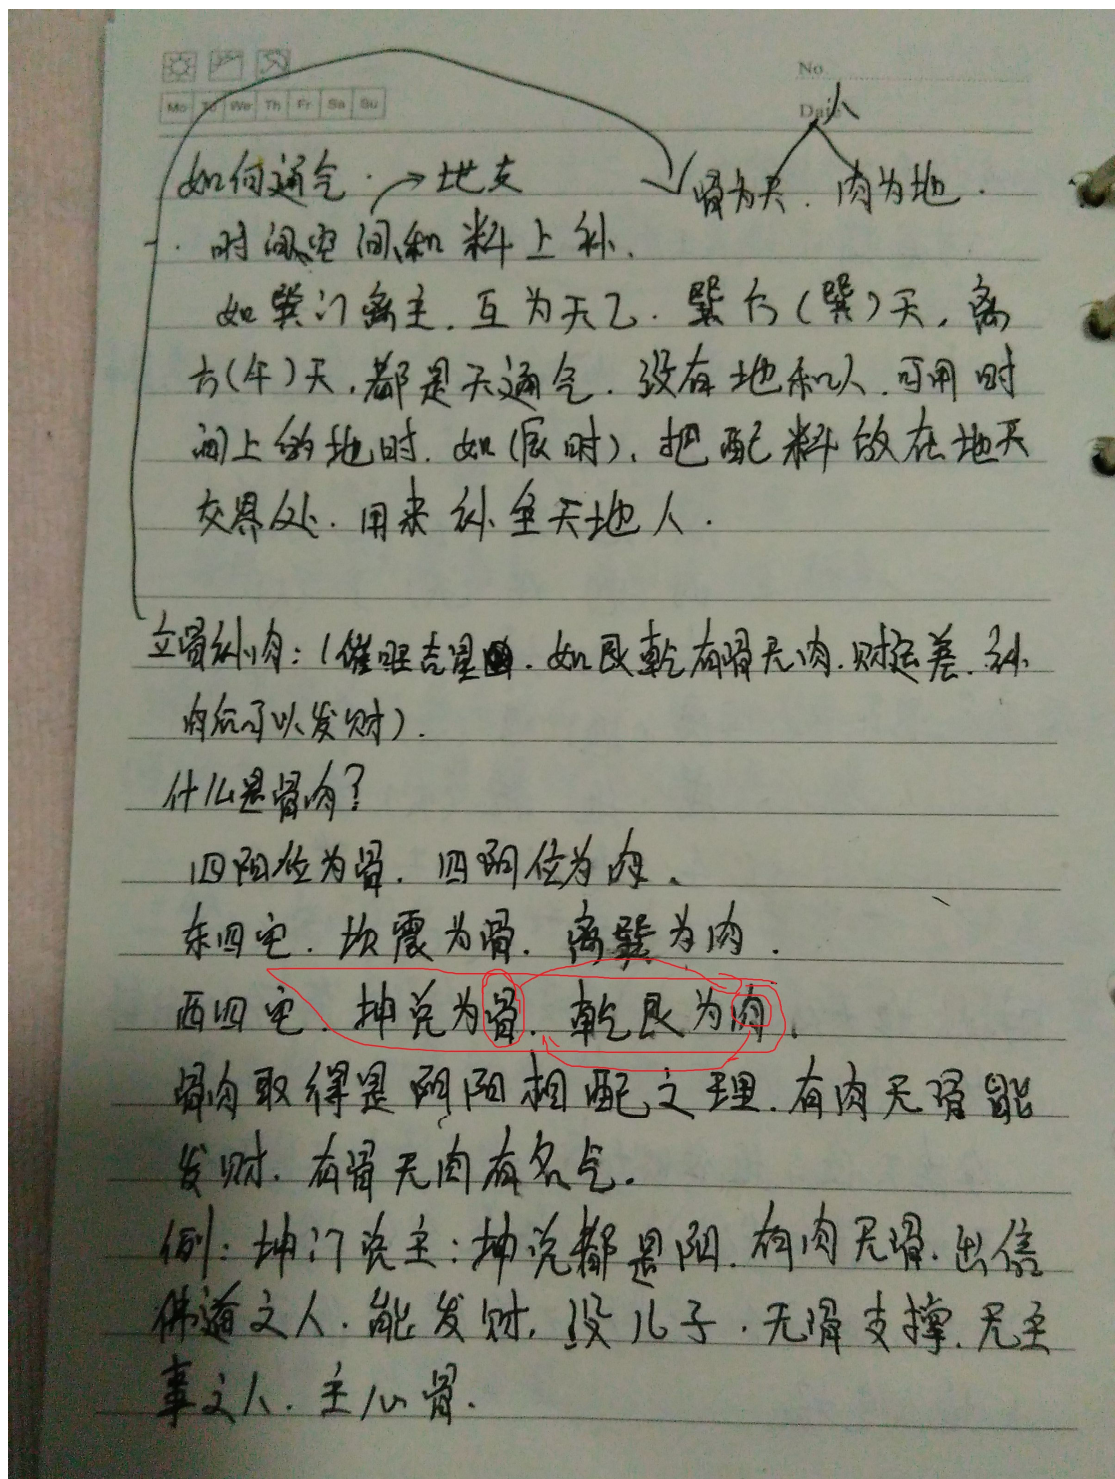 No.
Mo Tu We Th Fr Sa Su
Date
人
如何通气. → 地支
骨为天. 肉为地.
一. 时间、空间、和料上补.
如巽门离主. 互为天乙. 巽方(巽)天, 离
方(午)天, 都是天通气. 没有地和人. 可用时
间上的地时. 如(辰时), 把配料放在地天
交界处. 用来补全天地人.
立骨补肉: (催旺吉星 . 如艮乾有骨无肉. 财运差. 补
肉后可以发财).
什么是骨肉?
四阳位为骨. 四阴位为肉.
东四宅. 坎震为骨. 离巽为肉.
西四宅. 坤兑为骨. 乾艮为肉.
骨肉取得是阴阳相配之理. 有肉无骨能
发财. 有骨无肉有名气.
例: 坤门兑主: 坤兑都是阴. 有肉无骨. 出信
佛道之人. 能发财. 没儿子. 无骨支撑. 无主
事之人. 主心骨.